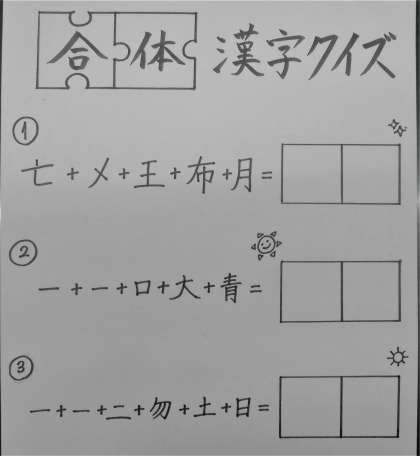 合体漢字クイズ
①
亡+メ+王+布+月=
②
一+一+口+大+青=
③
一+一+二+勿+土+日=